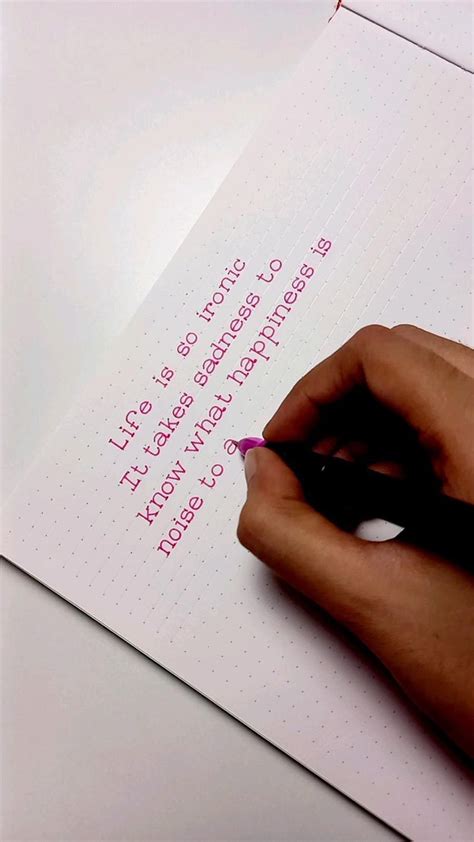 Life is so ironic
It takes sadness to
know what happiness is
noise to a